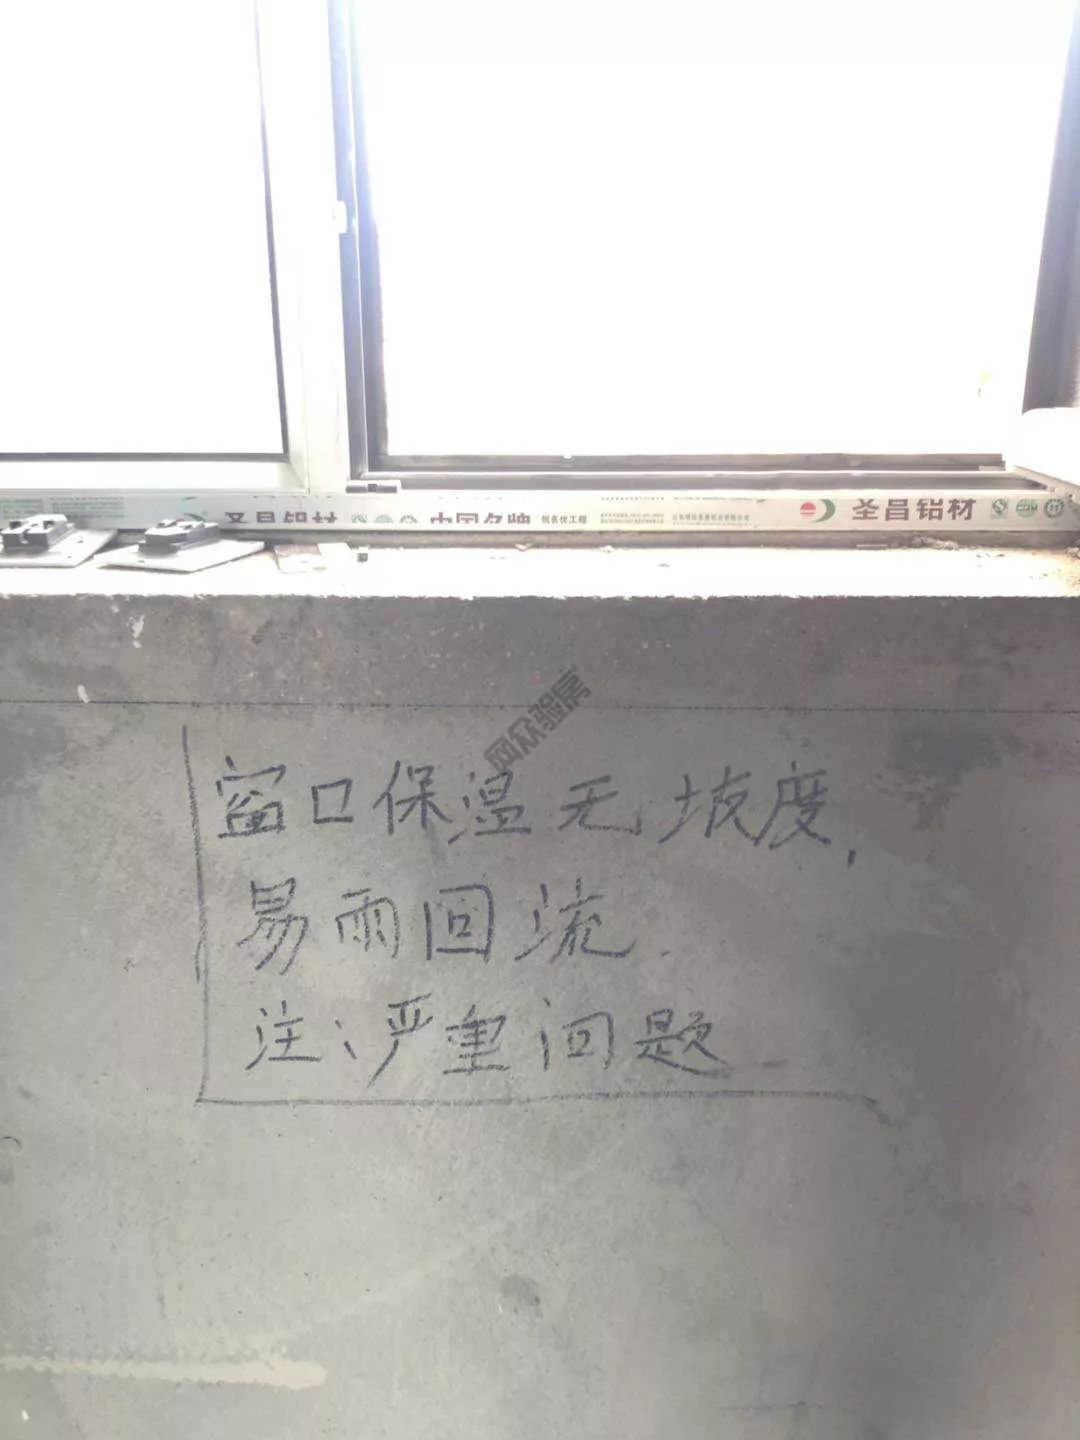 圣昌铝材 中国名牌 创名优工程 圣昌铝材
网众验房
窗口保温无坡度,
易雨回流.
注:严重问题